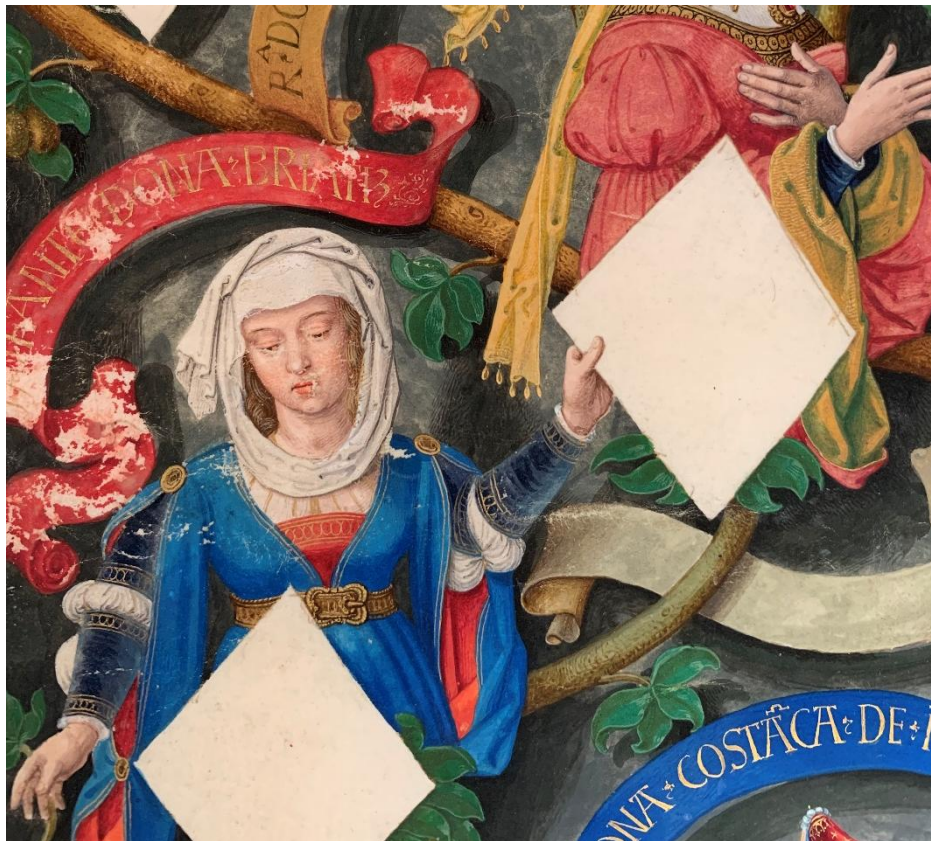 ANTE DONA BRIATIZ
ONA COSTÃCA DE